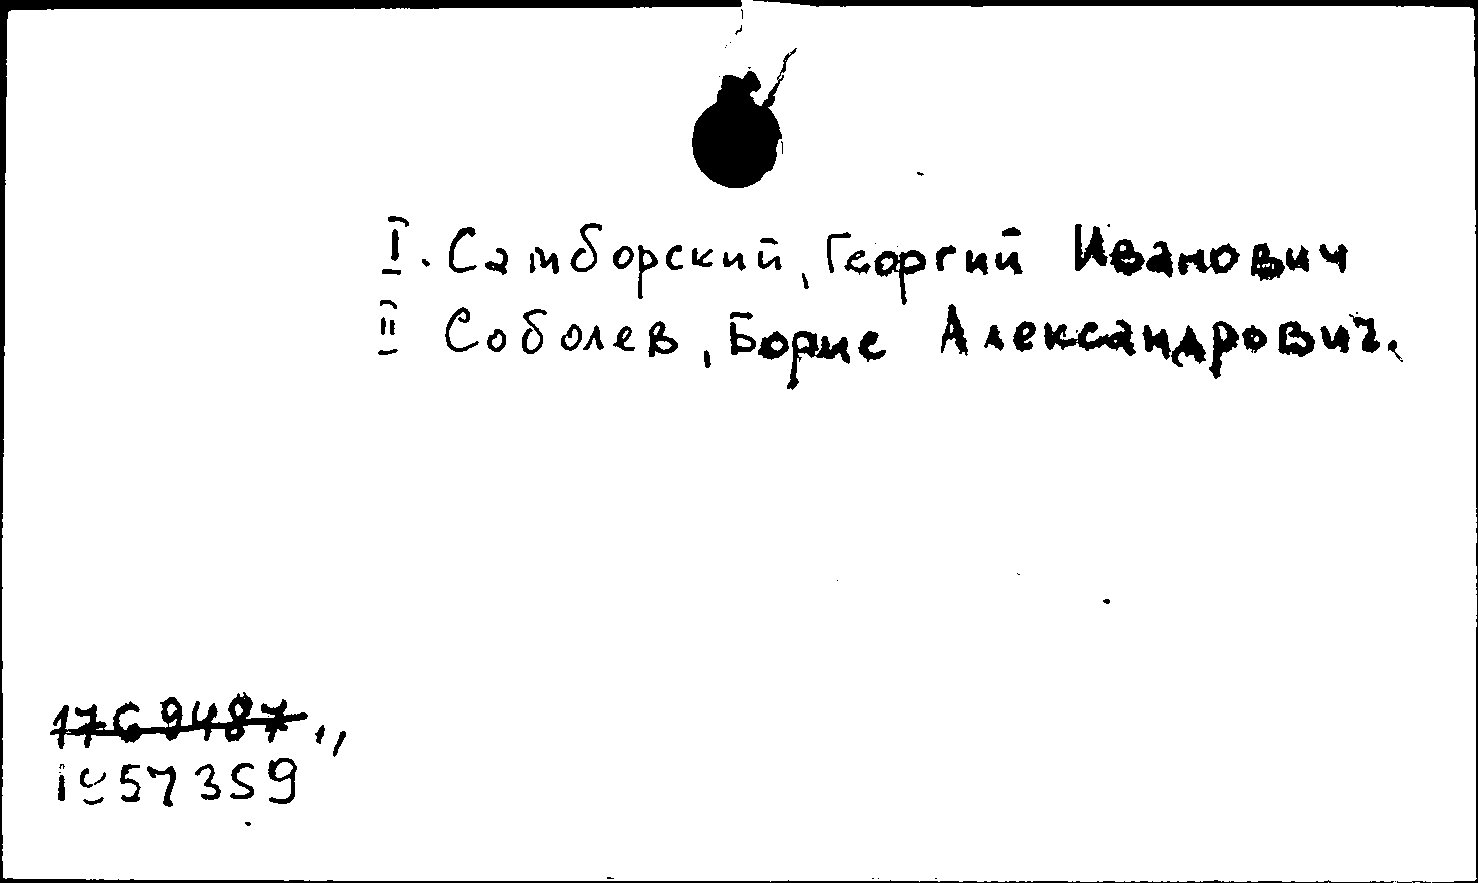 I. Самборский, Георгий Иванович
II Соболев, Борис Александрович.
1769487,,